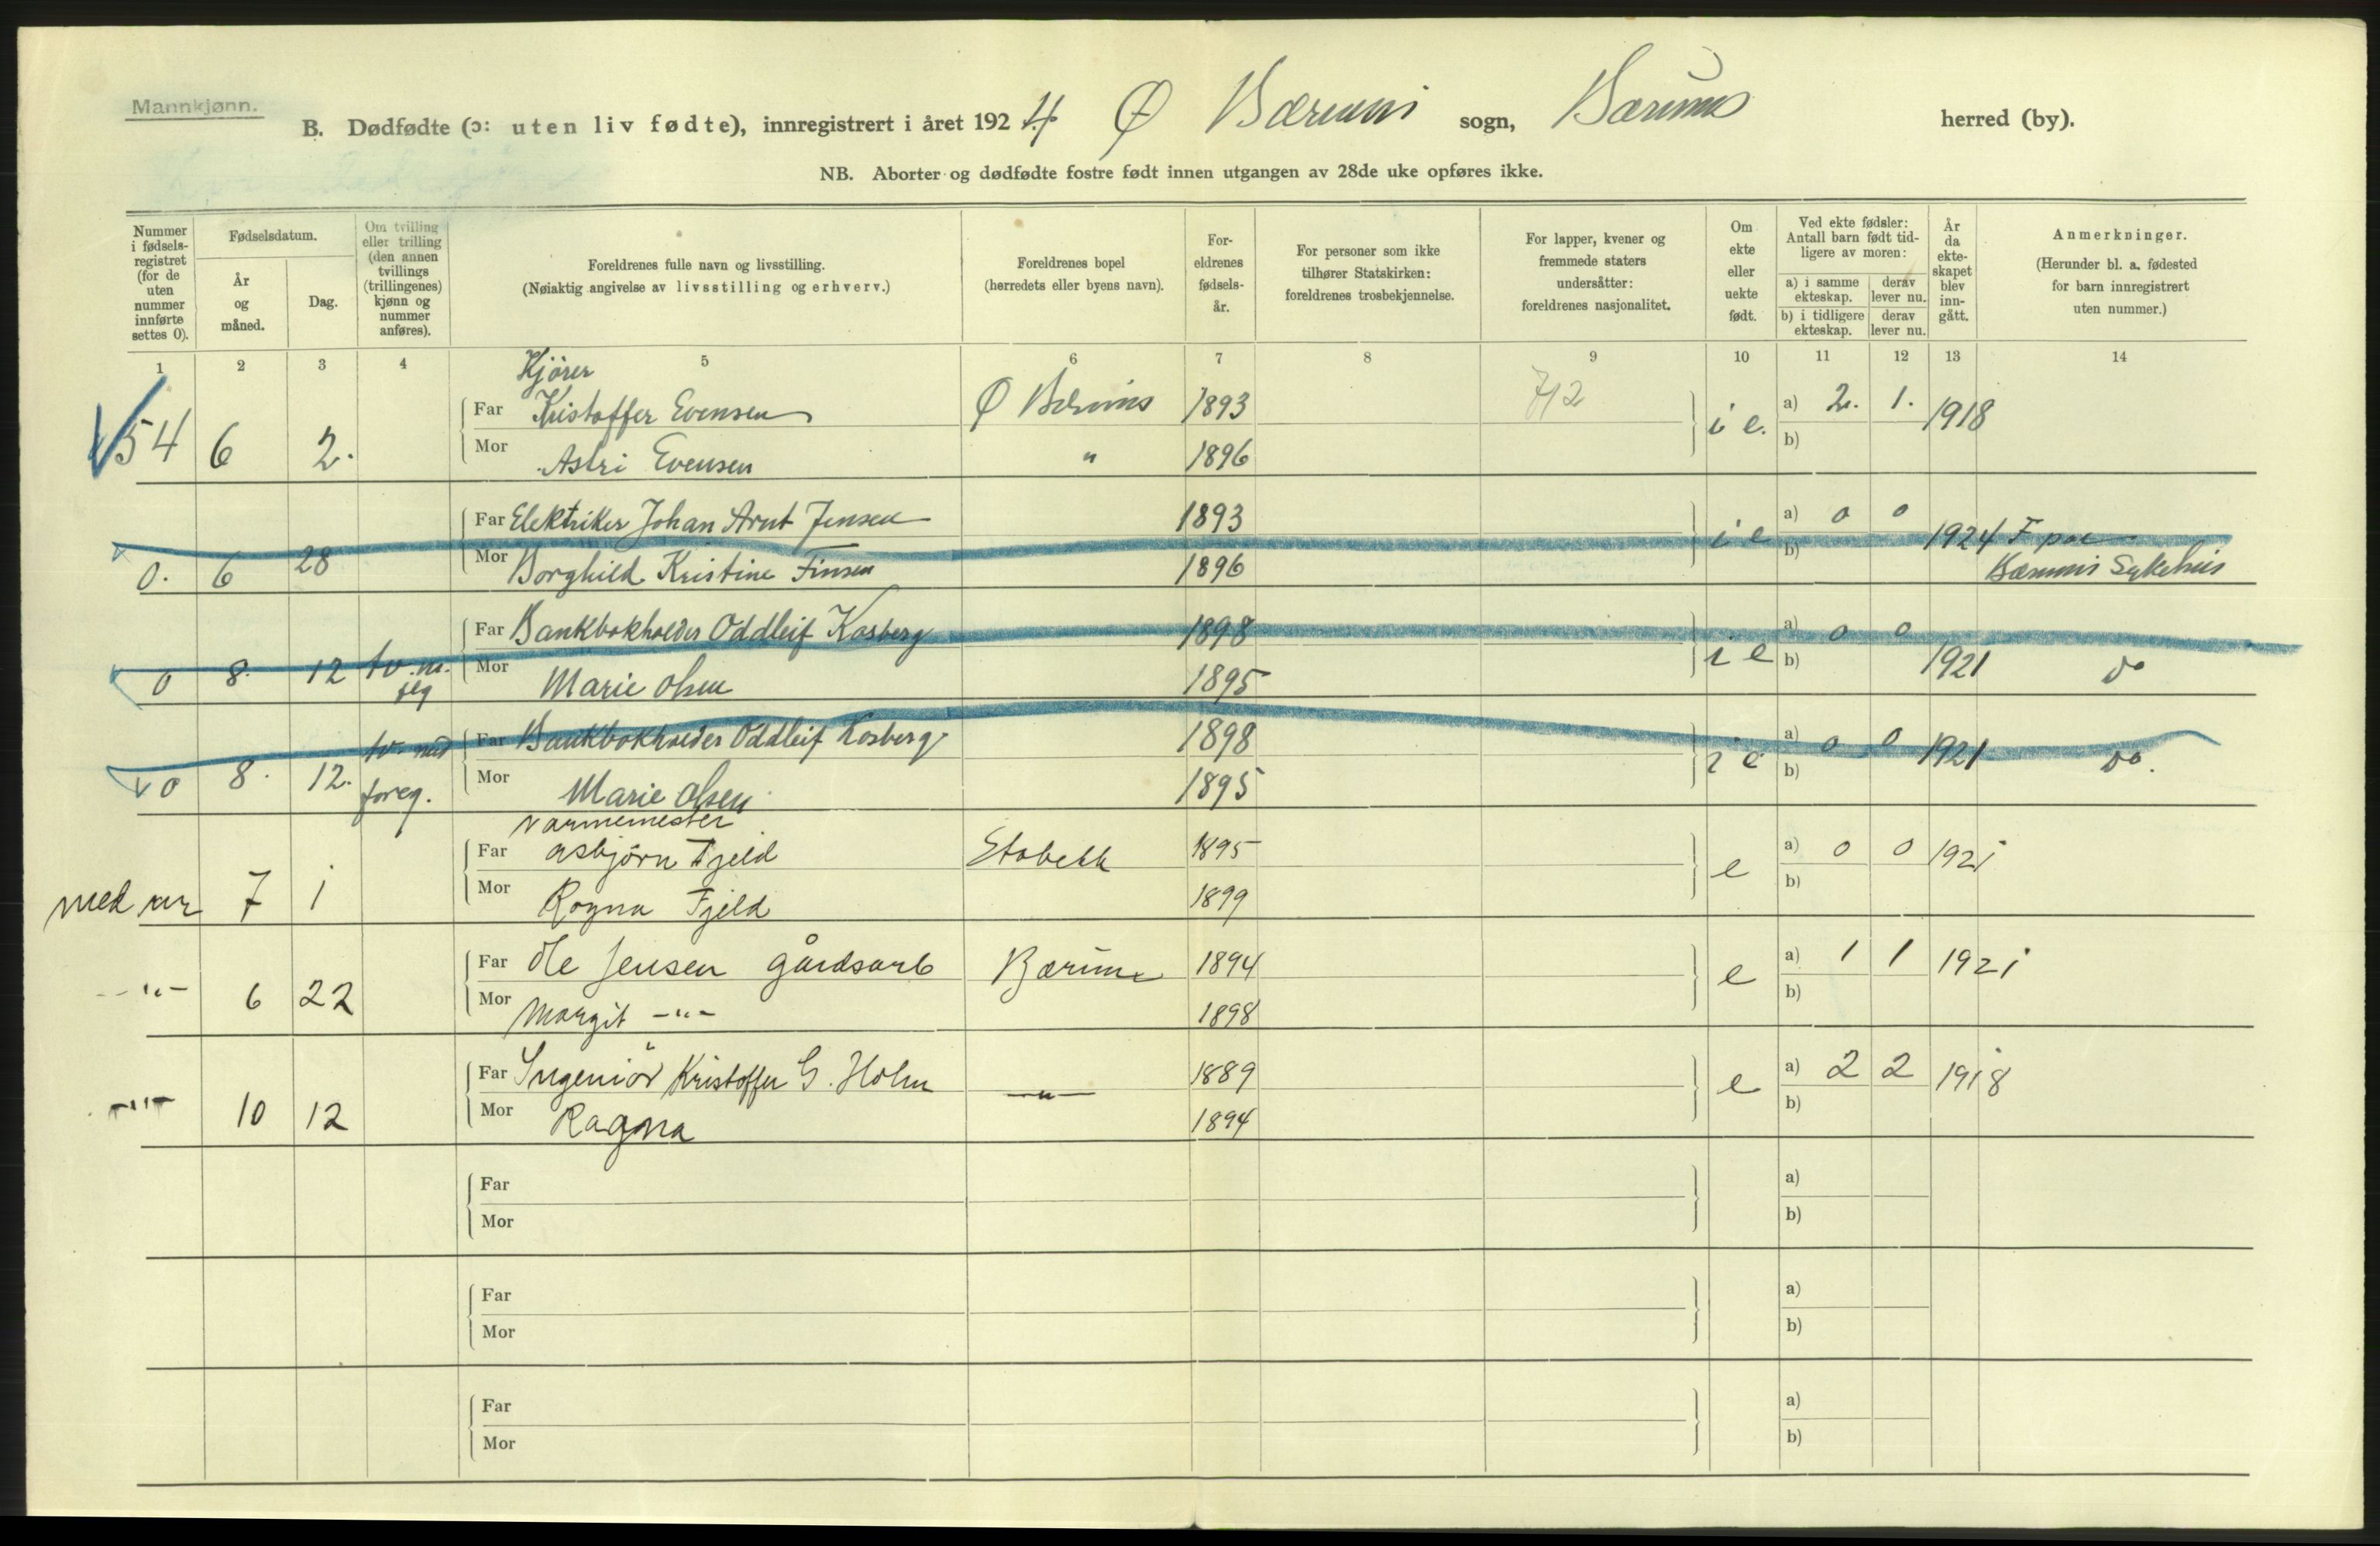 Mannkjønn.
B. Dødfødte (ɔ: uten liv fødte), innregistrert i året 1924 Ø Bærums sogn, Bærums herred (by).
NB. Aborter og dødfødte fostre født innen utgangen av 28de uke opføres ikke.
Nummer i fødsels-registret (for de uten nummer innførte settes 0).
Fødselsdatum.
År og måned.
Dag.
Om tvilling eller trilling (den annen tvillings (trillingenes) kjønn og nummer anføres).
Foreldrenes fulle navn og livsstilling.
(Nøiaktig angivelse av livsstilling og erhverv.)
Foreldrenes bopel
(herredets eller byens navn).
For-eldrenes fødsels-år.
For personer som ikke tilhører Statskirken: foreldrenes trosbekjennelse.
For lapper, kvener og fremmede staters undersåtter: foreldrenes nasjonalitet.
Om ekte eller uekte født.
Ved ekte fødsler: Antall barn født tid-ligere av moren:
a) i samme ekteskap. derav lever nu.
b) i tidligere ekteskap. derav lever nu.
År da ekte-skapet blev inn-gått.
Anmerkninger.
(Herunder bl. a. fødested for barn innregistrert uten nummer.)
1 2 3 4 5 6 7 8 9 10 11 12 13 14
Kjører
54 6 2. Far Kristoffer Evensen Ø Bærums 1893 712 i e. a) 2. 1. 1918
Mor Astri Evensen " 1896 b)
0. 6 28 Far Elektriker Johan Arnt Jensen 1893 i e a) 0 0 1924 F paa
Mor Borghild Kristine Finsen 1896 b) Bærums Sykehus
0 8. 12 tv. m. Far Bankbokholder Oddleif Kosberg 1898 i e a) 0 0 1921 do
Mor Marie Olsen 1895 b)
0 8. 12. tv. med foreg. Far Bankbokholder Oddleif Kosberg 1898 i e a) 0 0 1921 do.
Mor Marie Olsen 1895 b)
Varmemester
med nr 7 1 Far Asbjørn Fjeld Stabekk 1895 e a) 0 0 1921
Mor Ragna Fjeld 1899 b)
-"- 6 22 Far Ole Jensen gårdsarb Bærum 1894 e a) 1 1 1921
Mor Margit -"- 1898 b)
-"- 10 12 Far Ingeniør Kristoffer G. Holm -"- 1889 e a) 2 2 1918
Mor Ragna 1894 b)
Far a)
Mor b)
Far a)
Mor b)
Far a)
Mor b)